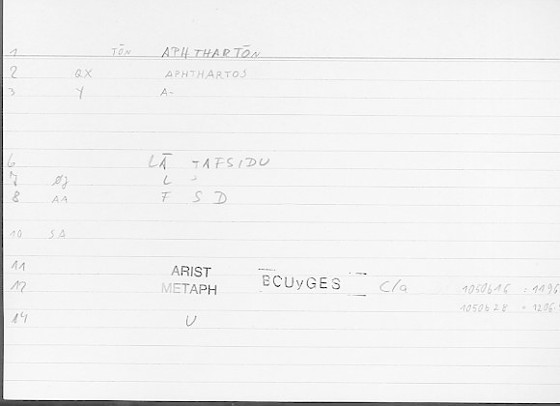 1 TŌN APHTHARTŌN
2 QX APHTHARTOS
3 Y A-
6 LĀ TAFSIDU
7 L
8 AA F S D
10 SA
11 ARIST
12 METAPH BCUyGES C/a 1050b16
14 U 1050b28